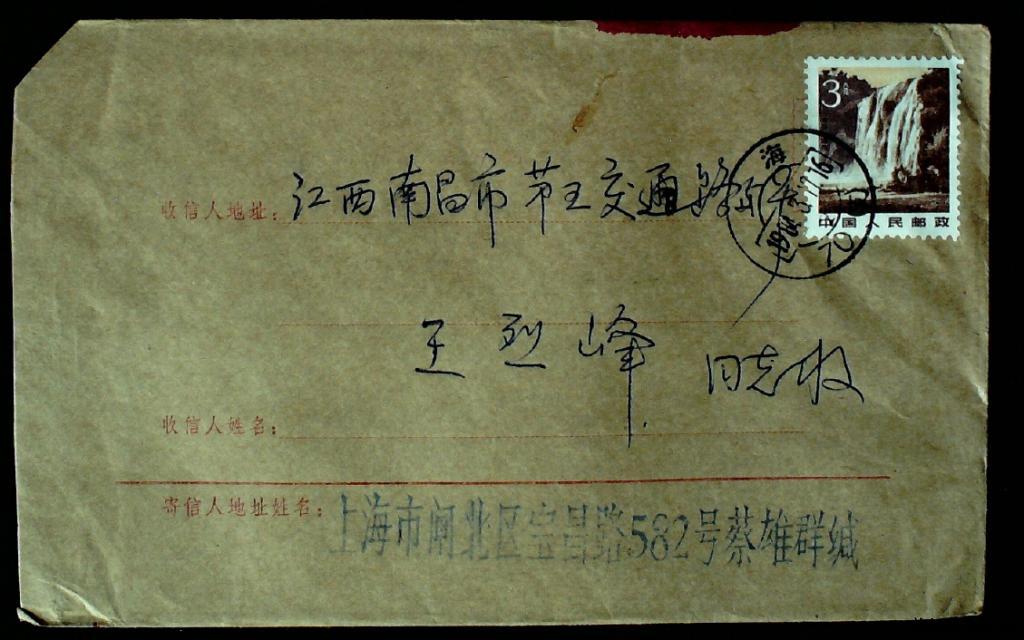 3
中国人民邮政
海
收信人地址：江西南昌市茅王交通路
王烈峰 同志收
收信人姓名：
寄信人地址姓名：上海市闸北区宝昌路582号蔡雄群缄